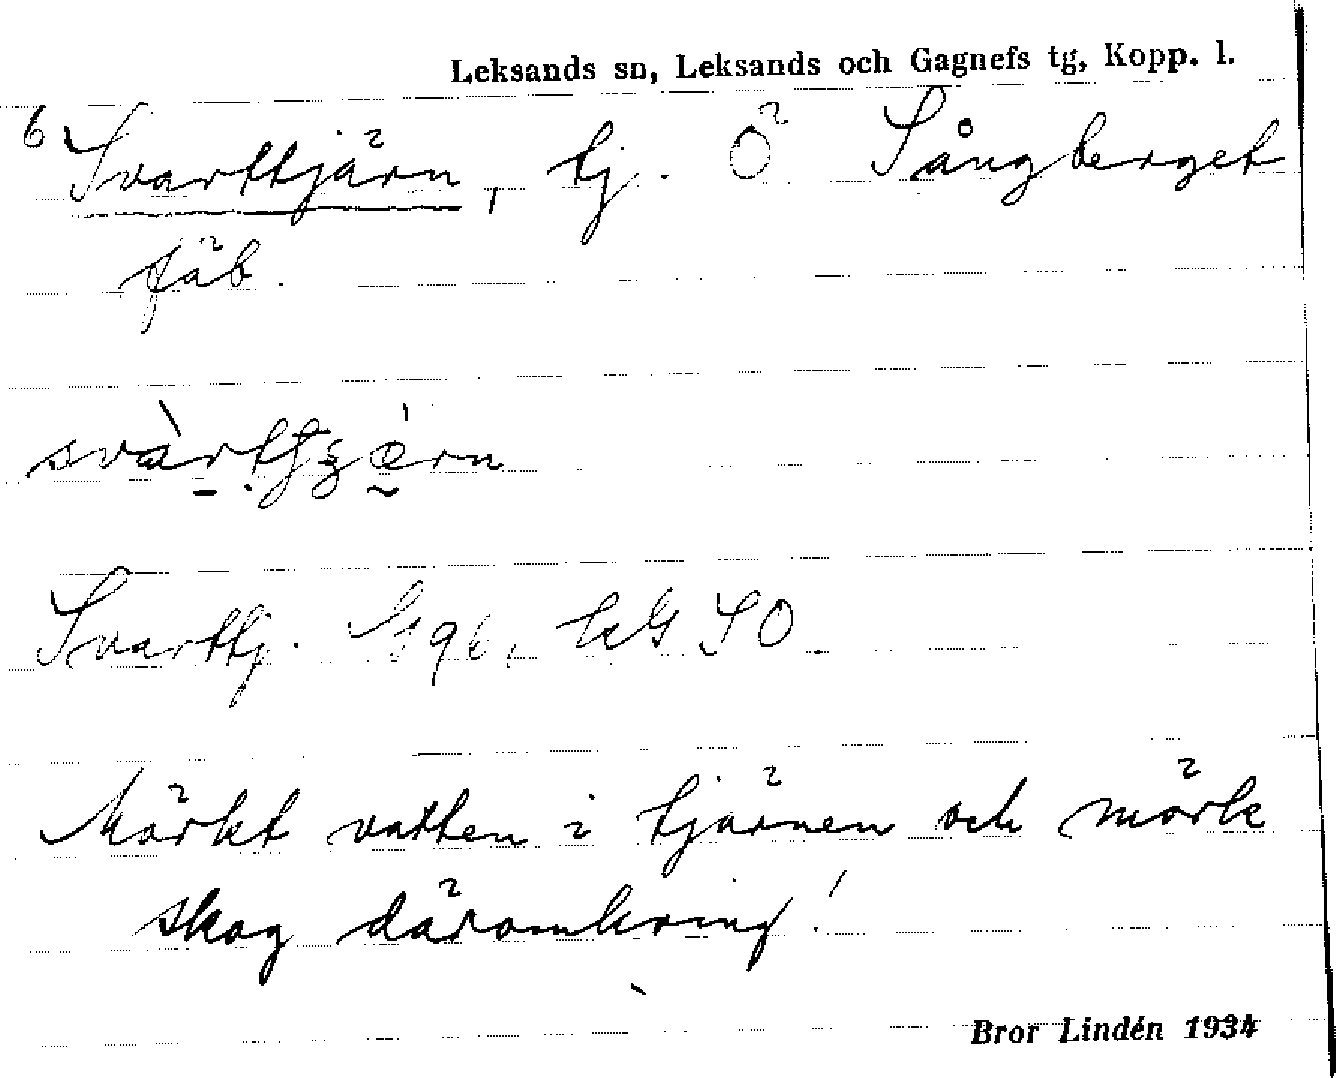 Leksands sn, Leksands och Gagnefs tg, Kopp. l.
6 Svarttjärn, tj. Ö Sångberget
fäb.
Svarttj. 96, SO
Mörkt vatten i tjärnen och mörk
skog däromkring!
Bror Lindén 1934